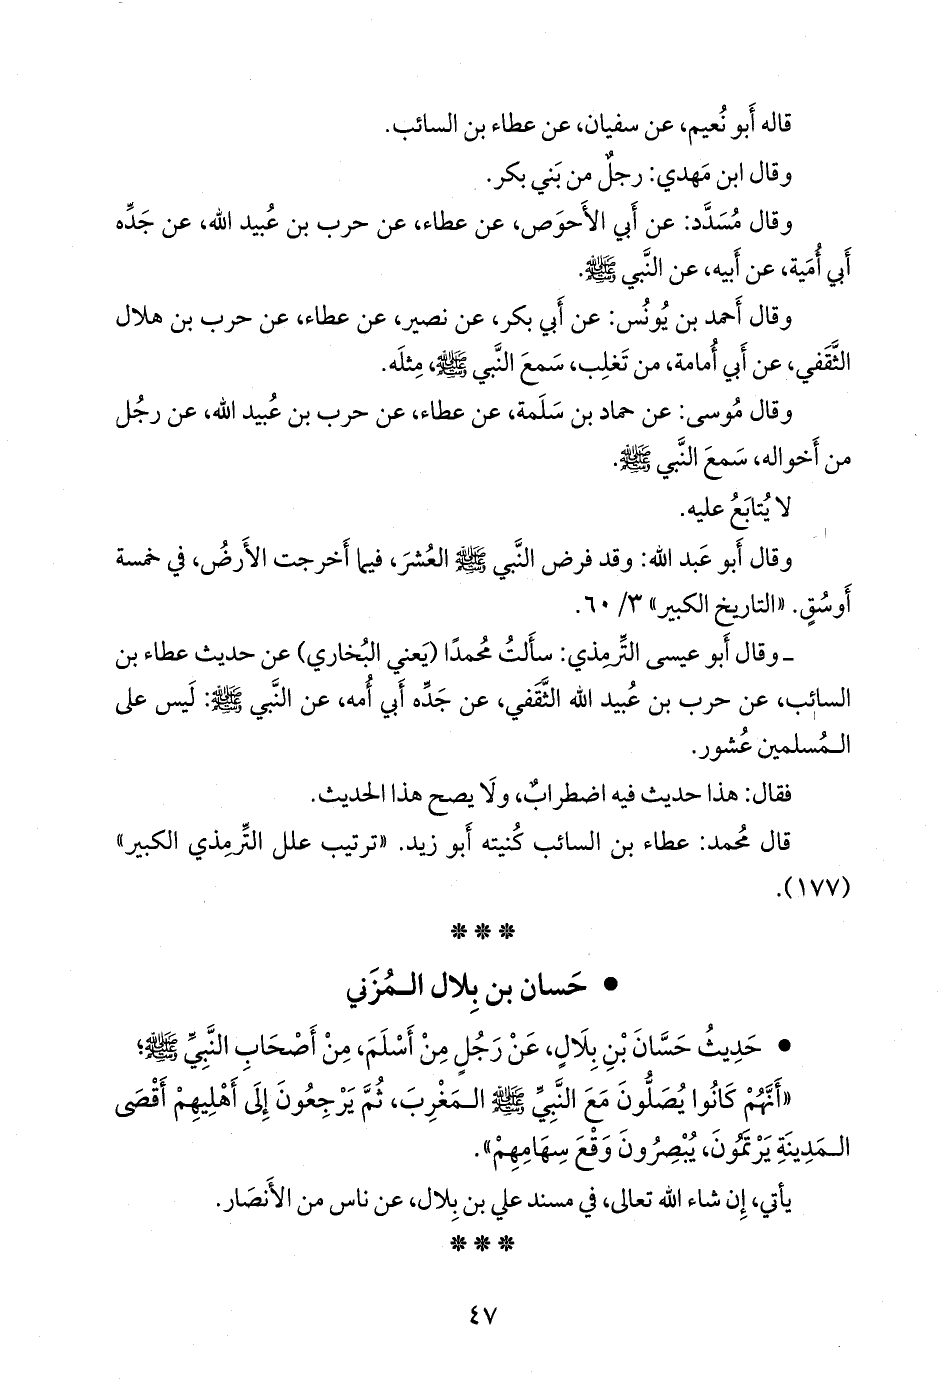 قاله أَبو نُعيم، عن سفيان، عن عطاء بن السائب.
وقال ابن مَهدي: رجلٌ من بَني بكر.
وقال مُسَدَّد: عن أَبي الأَحوَص، عن عطاء، عن حرب بن عُبيد الله، عن جَدِّه
أَبي أُمَية، عن أَبيه، عن النَّبي ﷺ.
وقال أَحمد بن يُونُس: عن أَبي بكر، عن نصير، عن عطاء، عن حرب بن هلال
الثَّقَفي، عن أَبي أُمامة، من تَغلِب، سَمعَ النَّبي ﷺ، مِثلَه.
وقال مُوسى: عن حماد بن سَلَمة، عن عطاء، عن حرب بن عُبيد الله، عن رجُل
من أَخواله، سَمعَ النَّبي ﷺ.
لا يُتابَعُ عليه.
وقال أَبو عَبد الله: وقد فرض النَّبي ﷺ العُشرَ، فيما أَخرجت الأَرضُ، في خمسة
أَوسُقٍ. «التاريخ الكبير» ٣/ ٦٠.
ـ وقال أَبو عيسى التِّرمِذي: سأَلتُ مُحمدًا (يَعني البُخاري) عن حديث عطاء بن
السائب، عن حرب بن عُبيد الله الثَّقَفي، عن جَدِّه أَبي أُمه، عن النَّبي ﷺ: لَيس على
الـمُسلمين عُشور.
فقال: هذا حديث فيه اضطرابٌ، ولَا يصح هذا الحديث.
قال مُحمد: عطاء بن السائب كُنيته أَبو زيد. «ترتيب علل التِّرمِذي الكبير»
(١٧٧).
❊ ❊ ❊
• حَسان بن بِلال الـمُزَني
• حَدِيثُ حَسَّانَ بْنِ بِلَالٍ، عَنْ رَجُلٍ مِنْ أَسْلَمَ، مِنْ أَصْحَابِ النَّبِيِّ ﷺ؛
«أَنَّهُمْ كَانُوا يُصَلُّونَ مَعَ النَّبِيِّ ﷺ الـمَغْرِبَ، ثُمَّ يَرْجِعُونَ إِلَى أَهْلِيهِمْ أَقْصَى
الـمَدِينَةِ يَرْتَمُونَ، يُبْصِرُونَ وَقْعَ سِهَامِهِمْ».
يأتي، إِن شاء الله تعالى، في مسند علي بن بِلال، عن ناس من الأَنصَار.
❊ ❊ ❊
٤٧